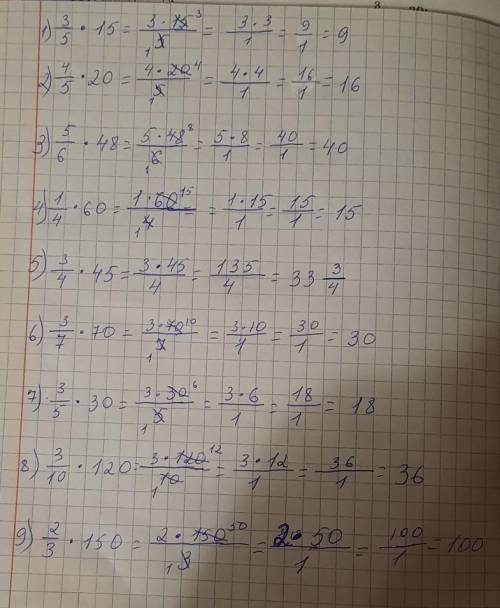 1) 3/5 · 15 = 3·15³/₁5 = 3·3/1 = 9/1 = 9
2) 4/5 · 20 = 4·20⁴/₁5 = 4·4/1 = 16/1 = 16
3) 5/6 · 48 = 5·48⁸/₁6 = 5·8/1 = 40/1 = 40
4) 1/4 · 60 = 1·60¹⁵/₁4 = 1·15/1 = 15/1 = 15
5) 3/4 · 45 = 3·45/4 = 135/4 = 33 3/4
6) 3/7 · 70 = 3·70¹⁰/₁7 = 3·10/1 = 30/1 = 30
7) 3/5 · 30 = 3·30⁶/₁5 = 3·6/1 = 18/1 = 18
8) 3/10 · 120 = 3·120¹²/₁10 = 3·12/1 = 36/1 = 36
9) 2/3 · 150 = 2·150⁵⁰/₁3 = 2·50/1 = 100/1 = 100